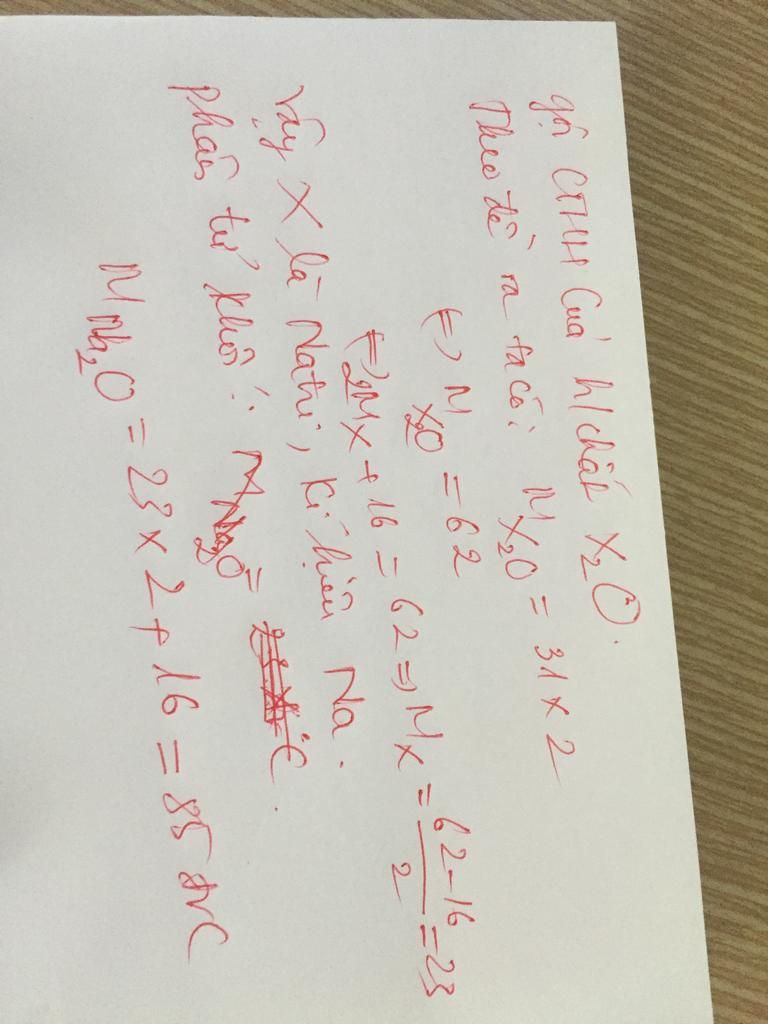 gọi CTHH Của h/chất X₂O.
Theo đề ra ta có: M X₂O = 31 x 2
(=) M X₂O = 62
(=) 2M X + 16 = 62 =) M X = 62-16 / 2 = 23
Vậy X là Natri, Kí hiệu Na.
phân tử khối: M Na₂O =
M Na₂O = 23 x 2 + 16 = 85 đvC